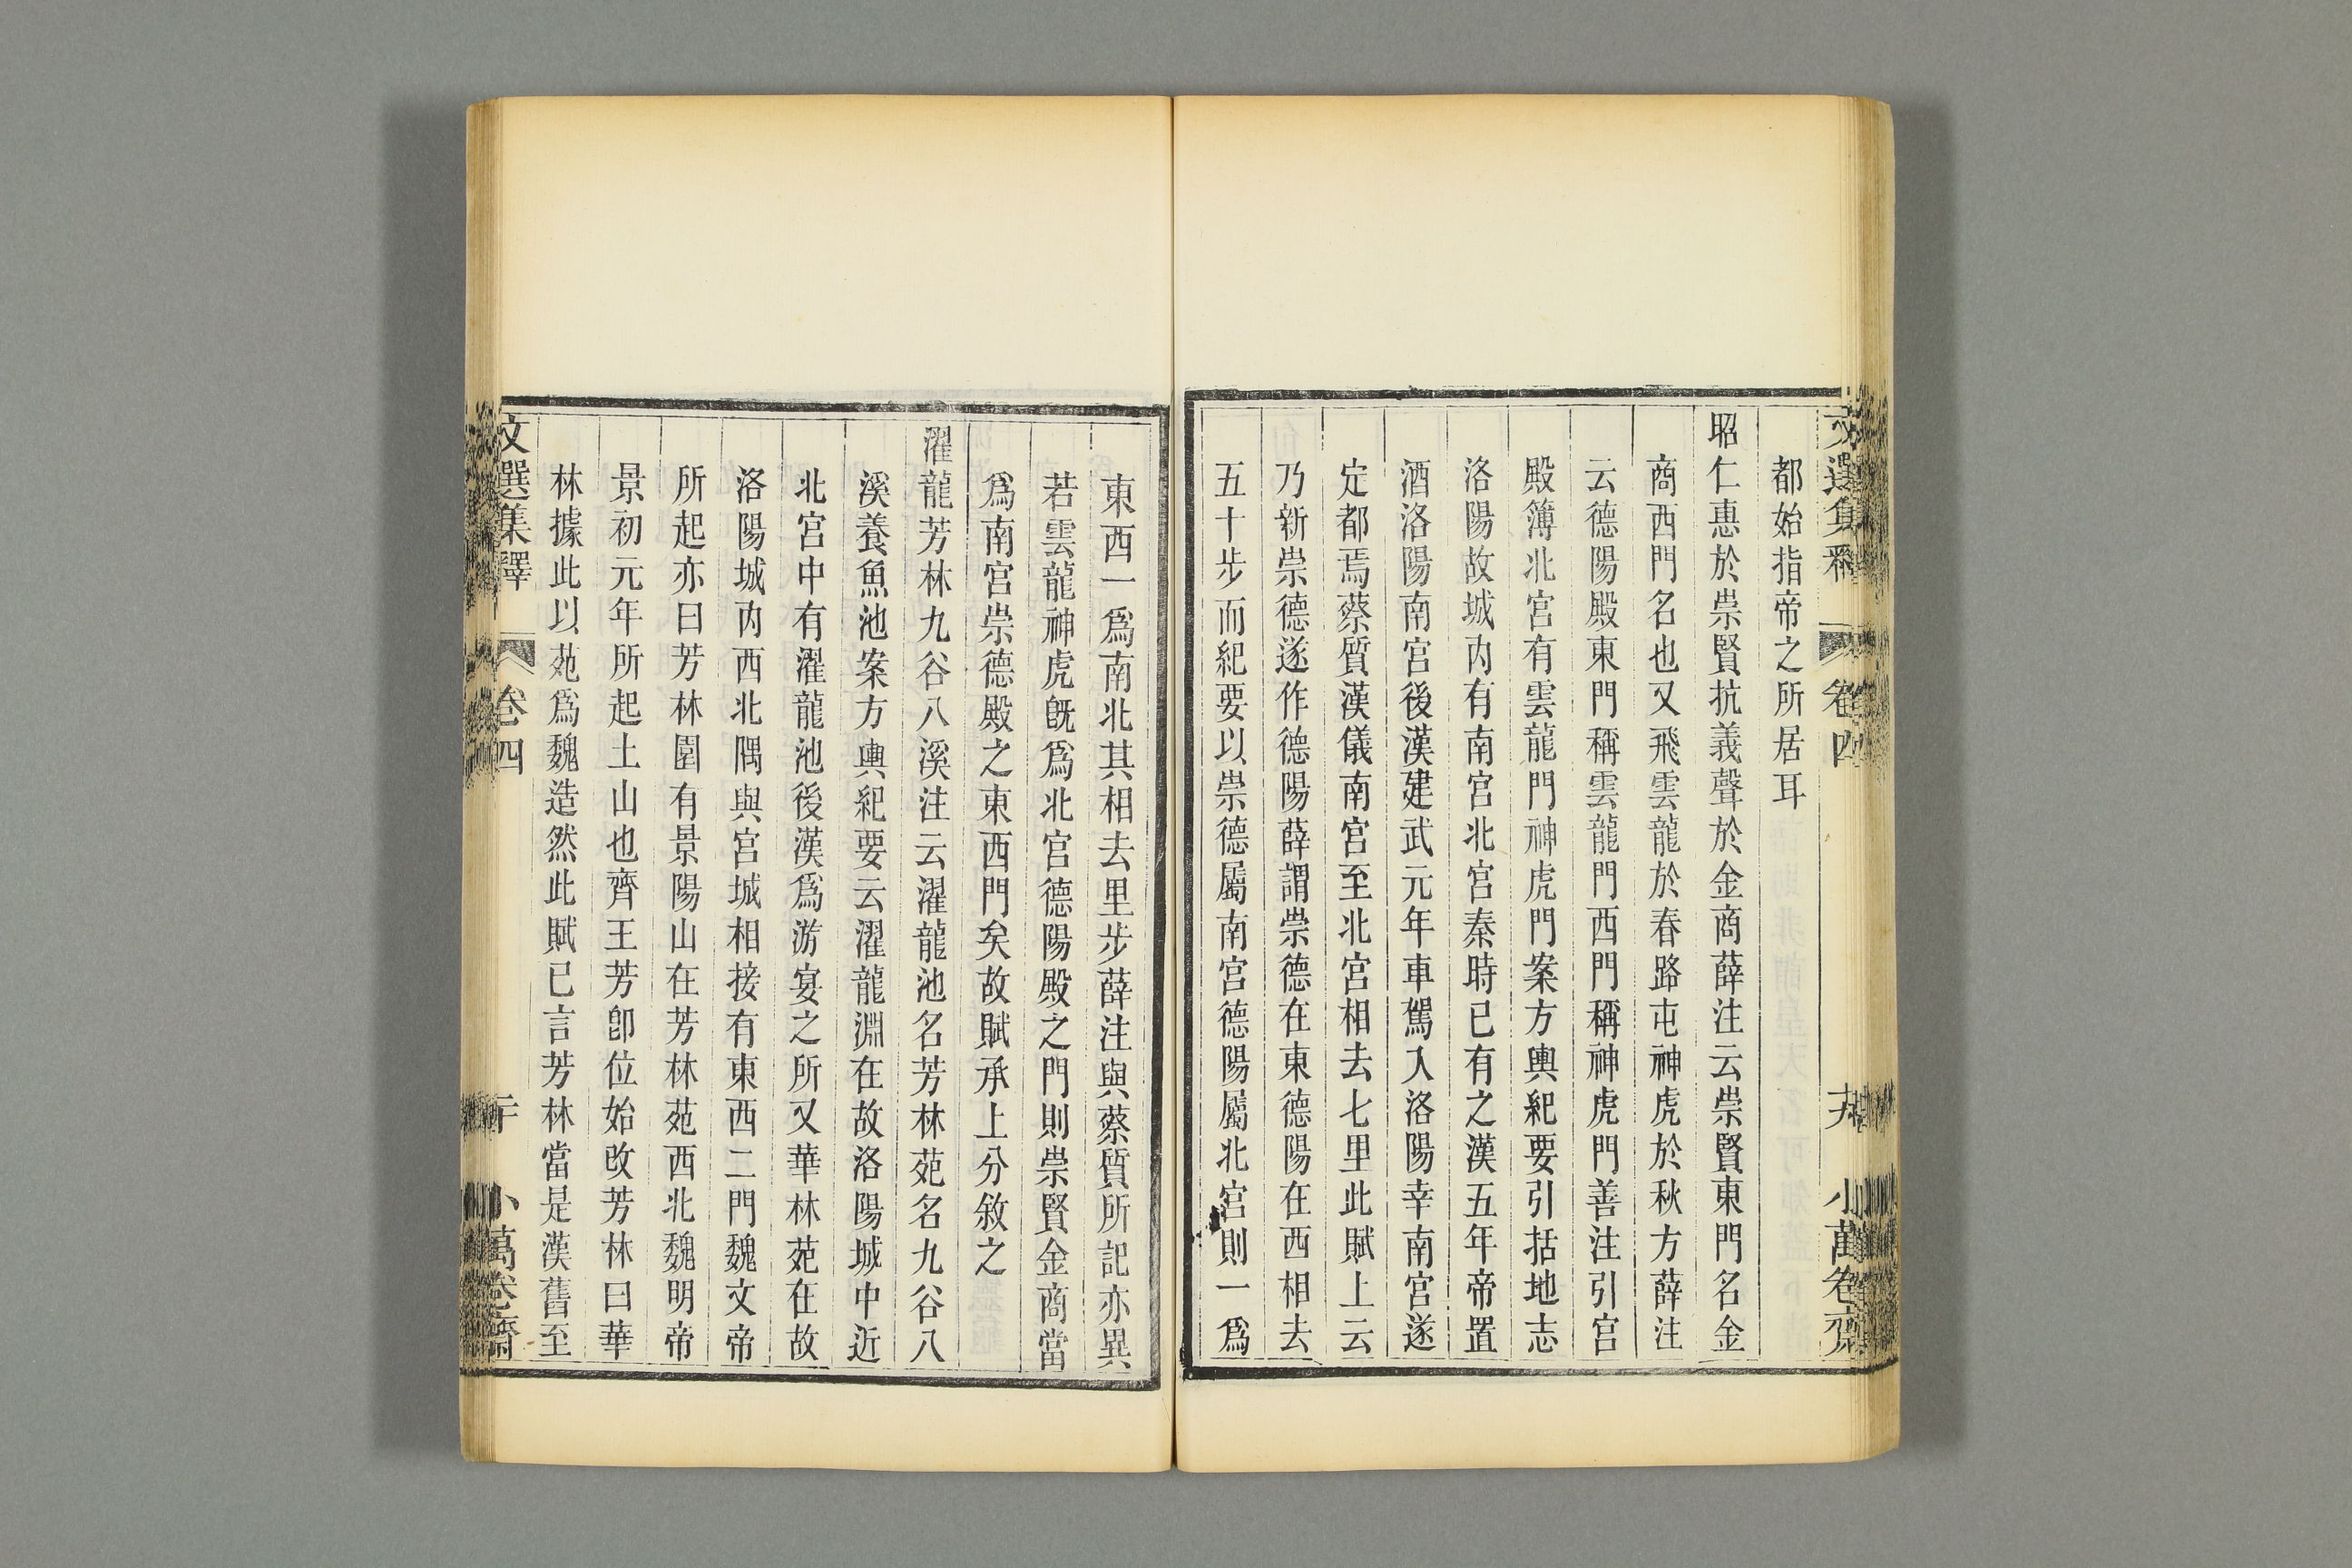 文選集釋 卷四 十九 小萬卷齋
都始指帝之所居耳
昭仁惠於崇賢抗義聲於金商薛注云崇賢東門名金
商西門名也又飛雲龍於春路屯神虎於秋方薛注
云德陽殿東門稱雲龍門西門稱神虎門善注引宮
殿簿北宮有雲龍門神虎門案方輿紀要引括地志
洛陽故城內有南宮北宮秦時已有之漢五年帝置
酒洛陽南宮後漢建武元年車駕入洛陽幸南宮遂
定都焉蔡質漢儀南宮至北宮相去七里此賦上云
乃新崇德遂作德陽薛謂崇德在東德陽在西相去
五十步而紀要以崇德屬南宮德陽屬北宮則一爲
東西一爲南北其相去里步薛注與蔡質所記亦異
若雲龍神虎旣爲北宮德陽殿之門則崇賢金商當
爲南宮崇德殿之東西門矣故賦承上分敘之
濯龍芳林九谷八溪注云濯龍池名芳林苑名九谷八
溪養魚池案方輿紀要云濯龍淵在故洛陽城中近
北宮中有濯龍池後漢爲游宴之所又華林苑在故
洛陽城內西北隅與宮城相接有東西二門魏文帝
所起亦曰芳林園有景陽山在芳林苑西北魏明帝
景初元年所起土山也齊王芳卽位始改芳林曰華
林據此以苑爲魏造然此賦已言芳林當是漢舊至
文選集釋 卷四 二十 小萬卷齋